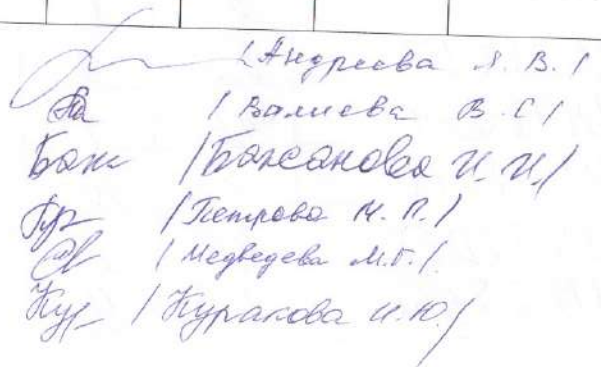 /Андреева Л. В./
/Валиева В. С/
Бак /Баканова И. И./
/Петрова М. П./
/Медведева М.Г./
Кур /Куракова И.Ю./